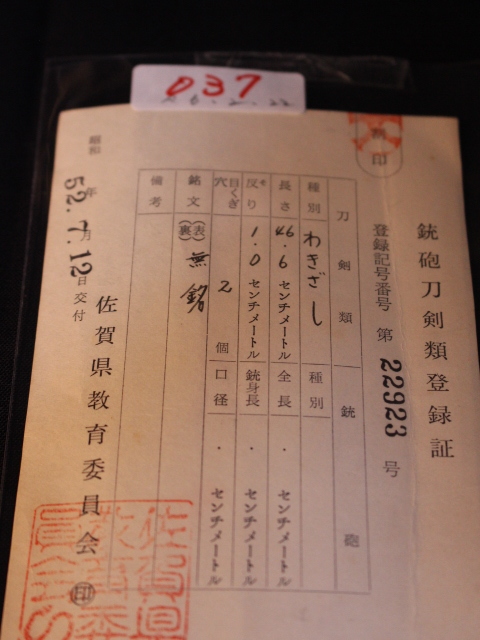 037
銃砲刀剣類登録証
割印
登録記号番号 第 22923 号
刀剣類
銃砲
種別 わきざし
種別
長さ 46.6 センチメートル
全長 . センチメートル
反り そ 1.0 センチメートル
銃身長 . センチメートル
目くぎ穴 2 個
口径 . センチメートル
銘文 (表)(裏) 無銘
備考
昭和52年7月12日交付
佐賀県教育委員会 印